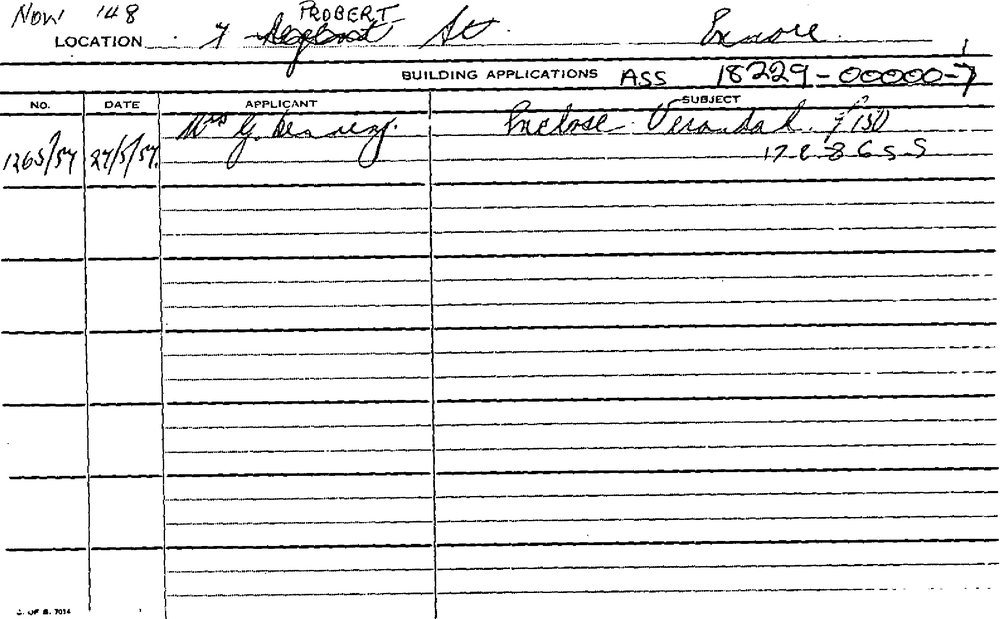 Now 148 PROBERT
LOCATION 7 St Enmore
BUILDING APPLICATIONS ASS 18229-00000-7
NO. DATE APPLICANT SUBJECT
Mrs G. Enclose Verandah £150
1265/57 27/5/57. 17-8-8655